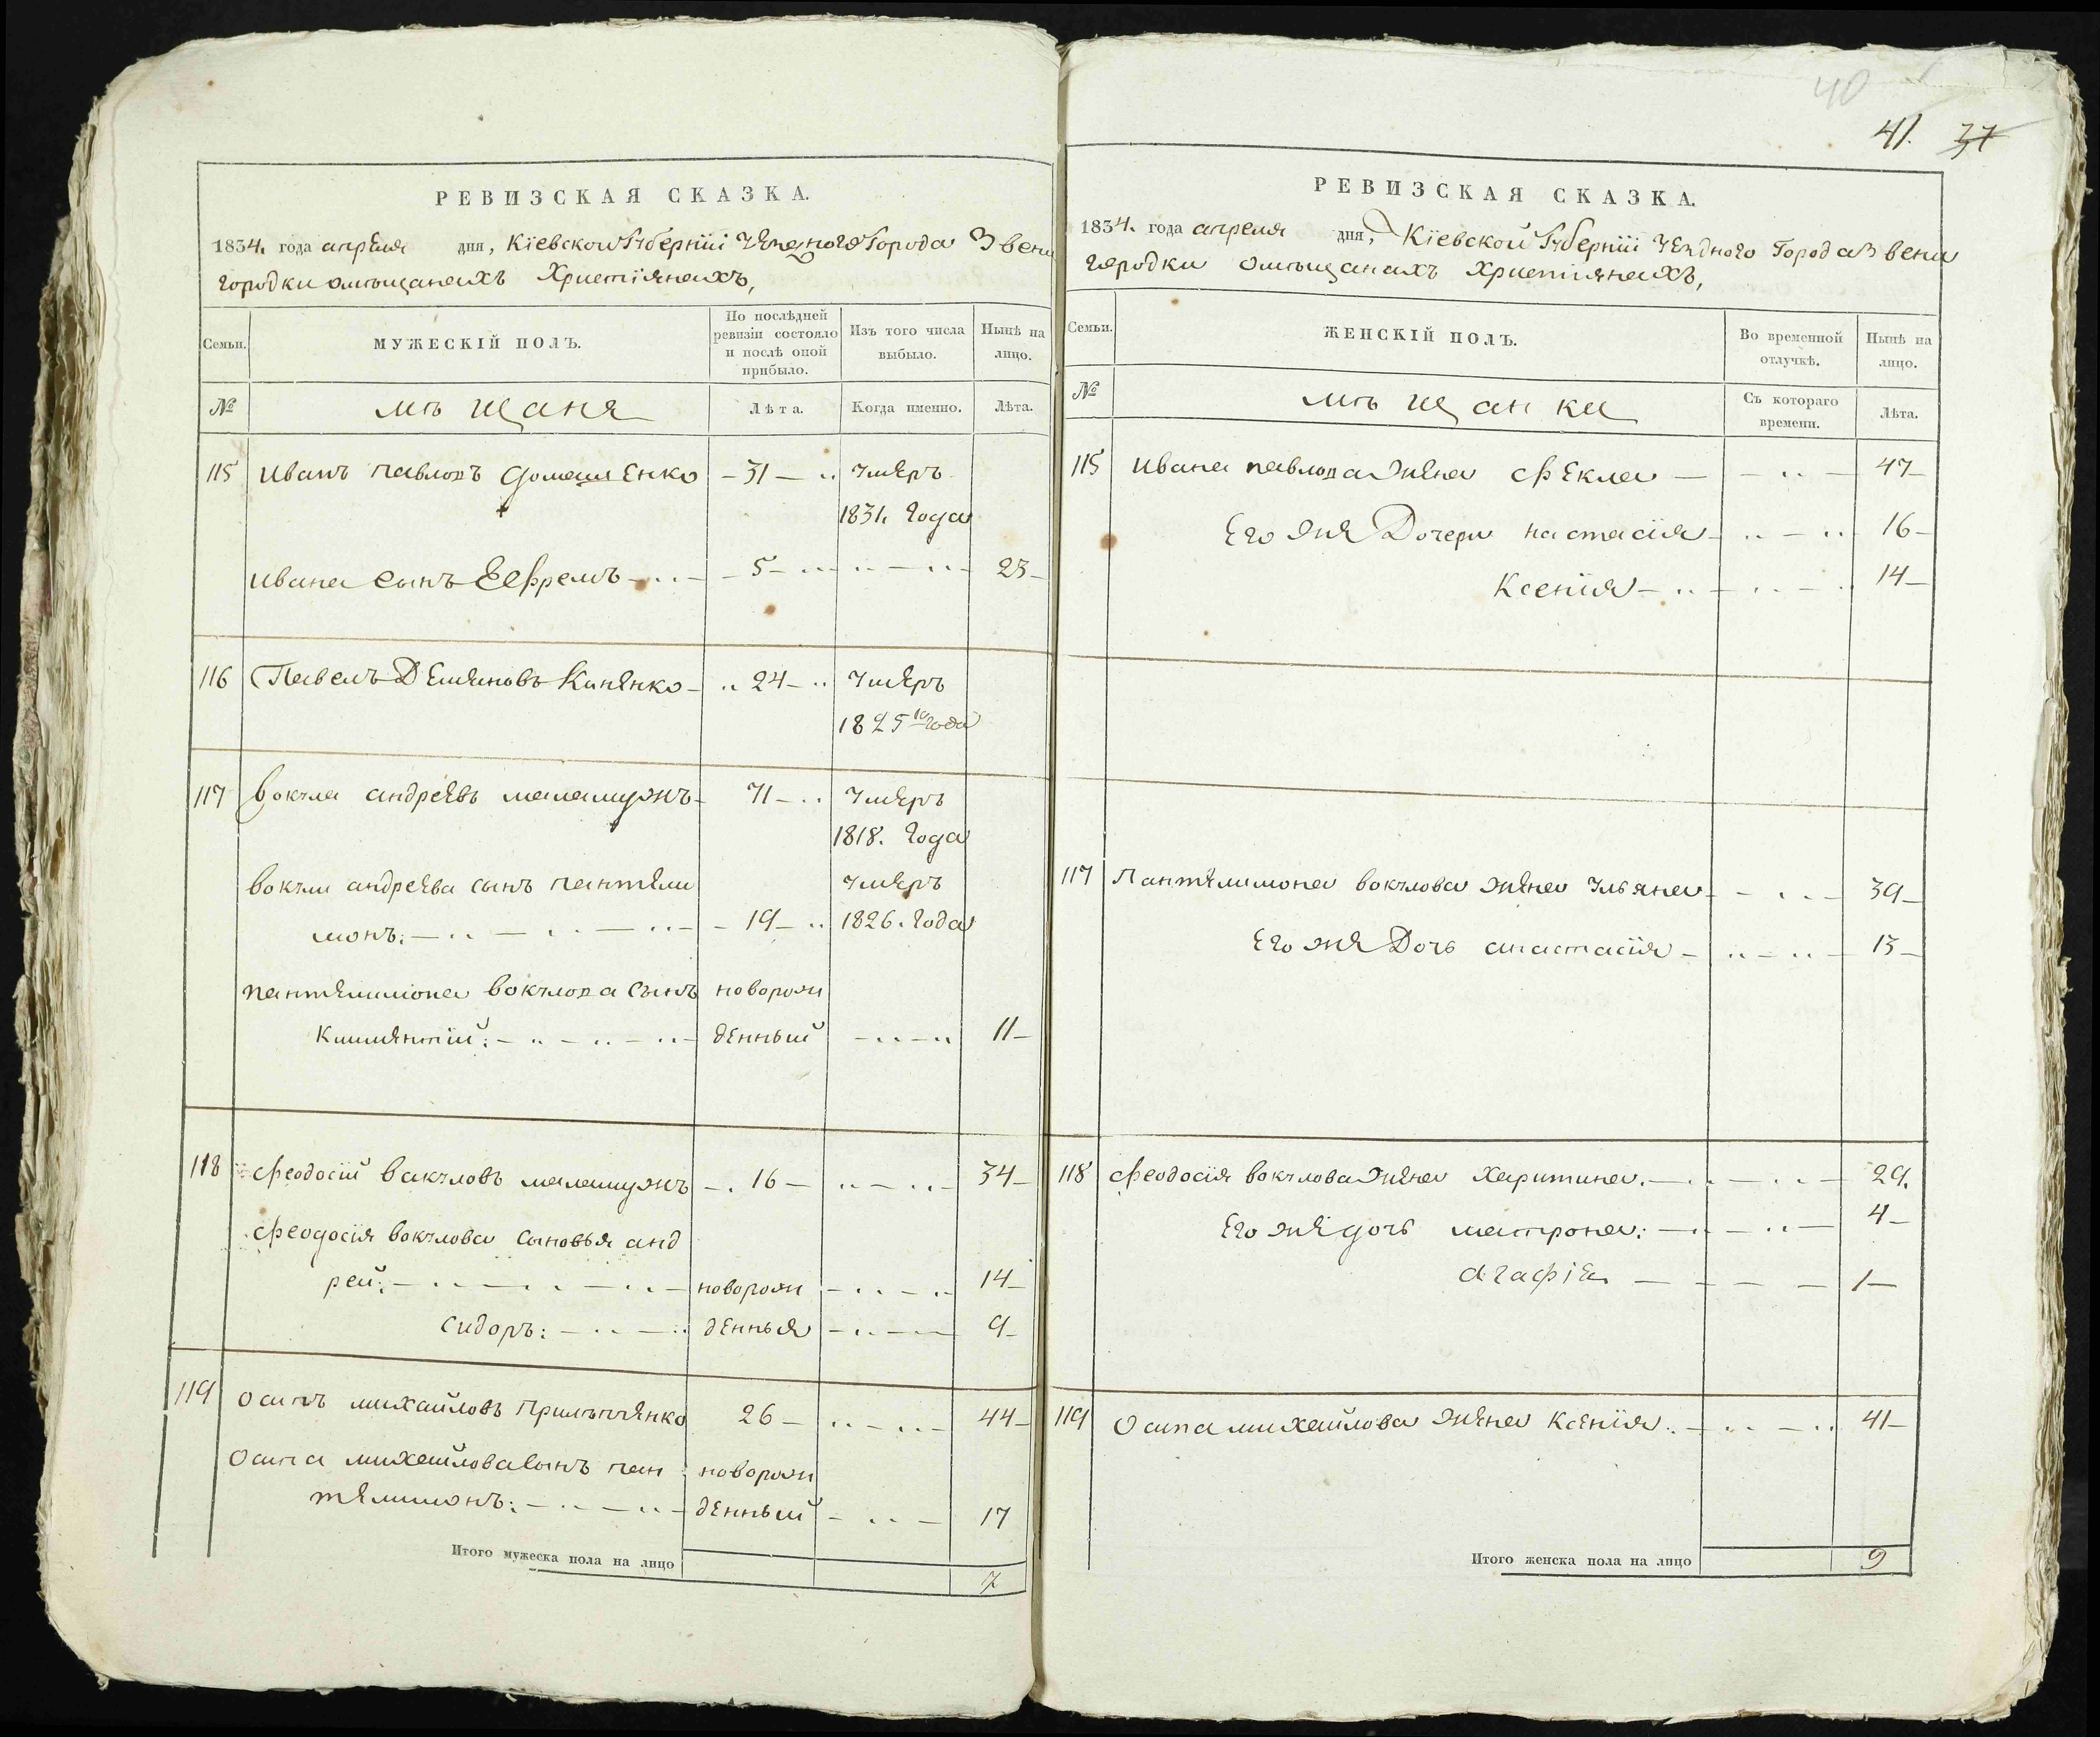 РЕВИЗСКАЯ СКАЗКА.
1834. года апреля дня, Кіевской Губерніи Уездного Города Звени
городки омѣщанахъ Христіянахъ,
Семьи.
МУЖЕСКІЙ ПОЛЪ.
По послѣдней ревизіи состояло и послѣ оной прибыло.
Изъ того числа выбыло.
Нынѣ на лицо.
№
мѣщаня
Лѣта.
Когда именно.
Лѣта.
115 Иванъ павловъ Домашенко — 31 — умеръ
1831. года
Ивана сынъ Еефремъ — 5 — 23
116 Павелъ Демяновъ — 24 — умеръ
1825го года
117 Вокула андреевъ маламужъ — 71 — умеръ
1818. года
вокули андреева сынъ пантели умеръ
монъ: — 19 — 1826. года
пантелимона вокулова сынъ новорож
Климентій: — денный — 11
118 Феодосій вакуловъ маламужъ — 16 — 34
Феодосія вокулова сыновья анд
рей: — новорож — 14
Сидоръ: — денныя — 9
119 Осипъ михайловъ 26 — 44
Осипа михайлова сынъ пан новорож
телимонъ: — денный — 17
Итого мужеска пола на лицо 7
40
41. 37
РЕВИЗСКАЯ СКАЗКА.
1834. года апреля дня, Кіевской Губерніи Уездного Города Звени
городки омѣщанахъ Христіянахъ,
Семьи.
ЖЕНСКІЙ ПОЛЪ.
Во временной отлучкѣ.
Нынѣ на лицо.
№
мѣщанки
Съ котораго времени.
Лѣта.
115 Ивана павлова жена Фекла — 47
Его же Дочери настасія — 16
Ксенія — 14
117 Пантелимона вокулова жена Ульяна — 39
Его же Дочь анастасія — 13
118 Феодосія вокулова жена Харитина. — 29.
Его же дочь матрона: — 4
агафія — 1
119 Осипа михайлова жена Ксенія: — 41
Итого женска пола на лицо 9